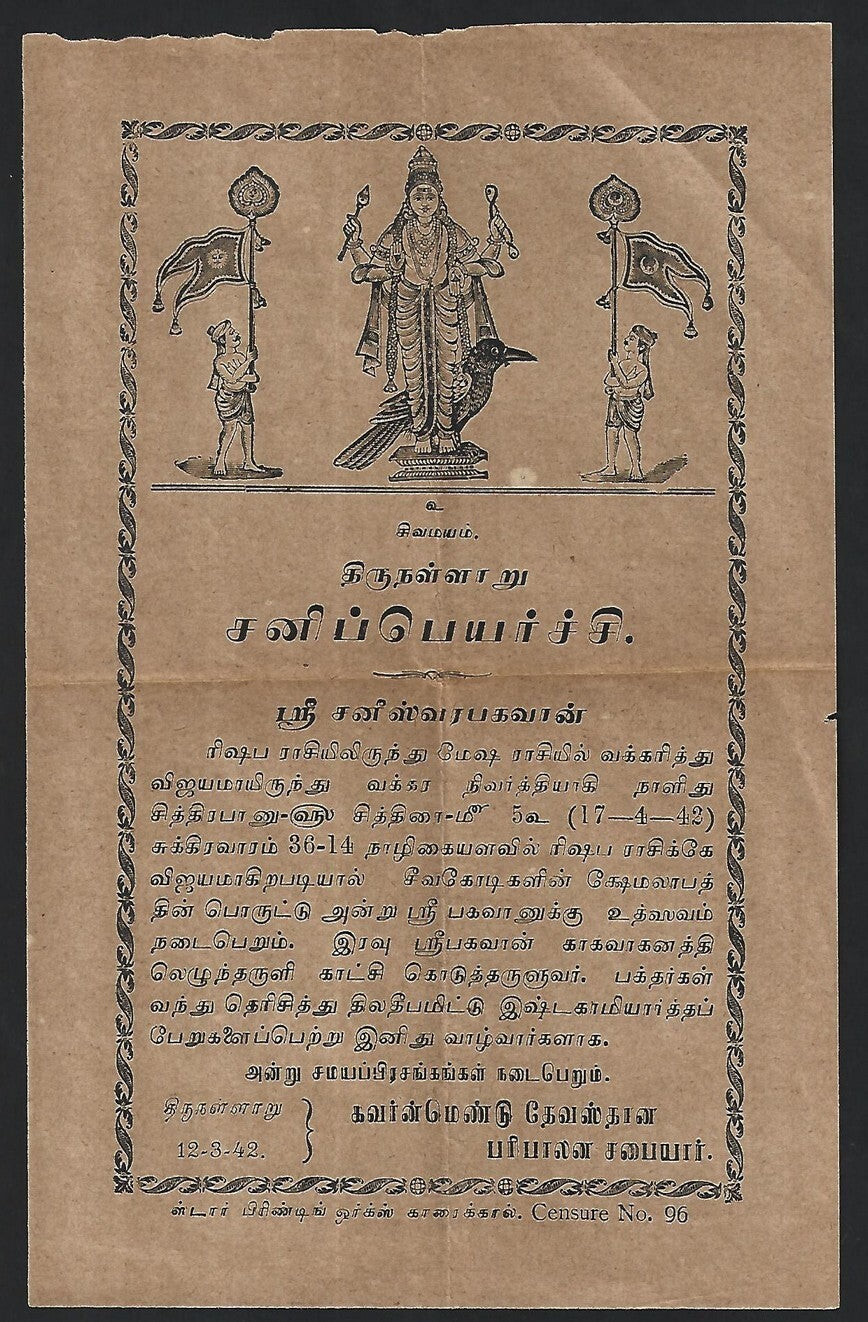 உ
சிவமயம்.
திருநள்ளாறு
சனிப்பெயர்ச்சி.
ஸ்ரீ சனீஸ்வரபகவான்
ரிஷப ராசியிலிருந்து மேஷ ராசியில் வக்கரித்து
விஜயமாயிருந்து வக்கர நிவர்த்தியாகி நாளிது
சித்திரபானு-௵ சித்திரை-௴ 5௳ (17—4—42)
சுக்கிரவாரம் 36-14 நாழிகையளவில் ரிஷப ராசிக்கே
விஜயமாகிறபடியால் சீவகோடிகளின் க்ஷேமலாபத்
தின் பொருட்டு அன்று ஸ்ரீ பகவானுக்கு உத்ஸவம்
நடைபெறும். இரவு ஸ்ரீபகவான் காகவாகனத்தி
லெழுந்தருளி காட்சி கொடுத்தருளுவர். பக்தர்கள்
வந்து தெரிசித்து திலதீபமிட்டு இஷ்டகாமியார்த்தப்
பேறுகளைப்பெற்று இனிது வாழ்வார்களாக.
அன்று சமயப்பிரசங்கங்கள் நடைபெறும்.
திருநள்ளாறு
12-3-42.
கவர்ன்மெண்டு தேவஸ்தான
பரிபாலன சபையார்.
ஸ்டார் பிரிண்டிங் ஒர்க்ஸ் காரைக்கால். Censure No. 96